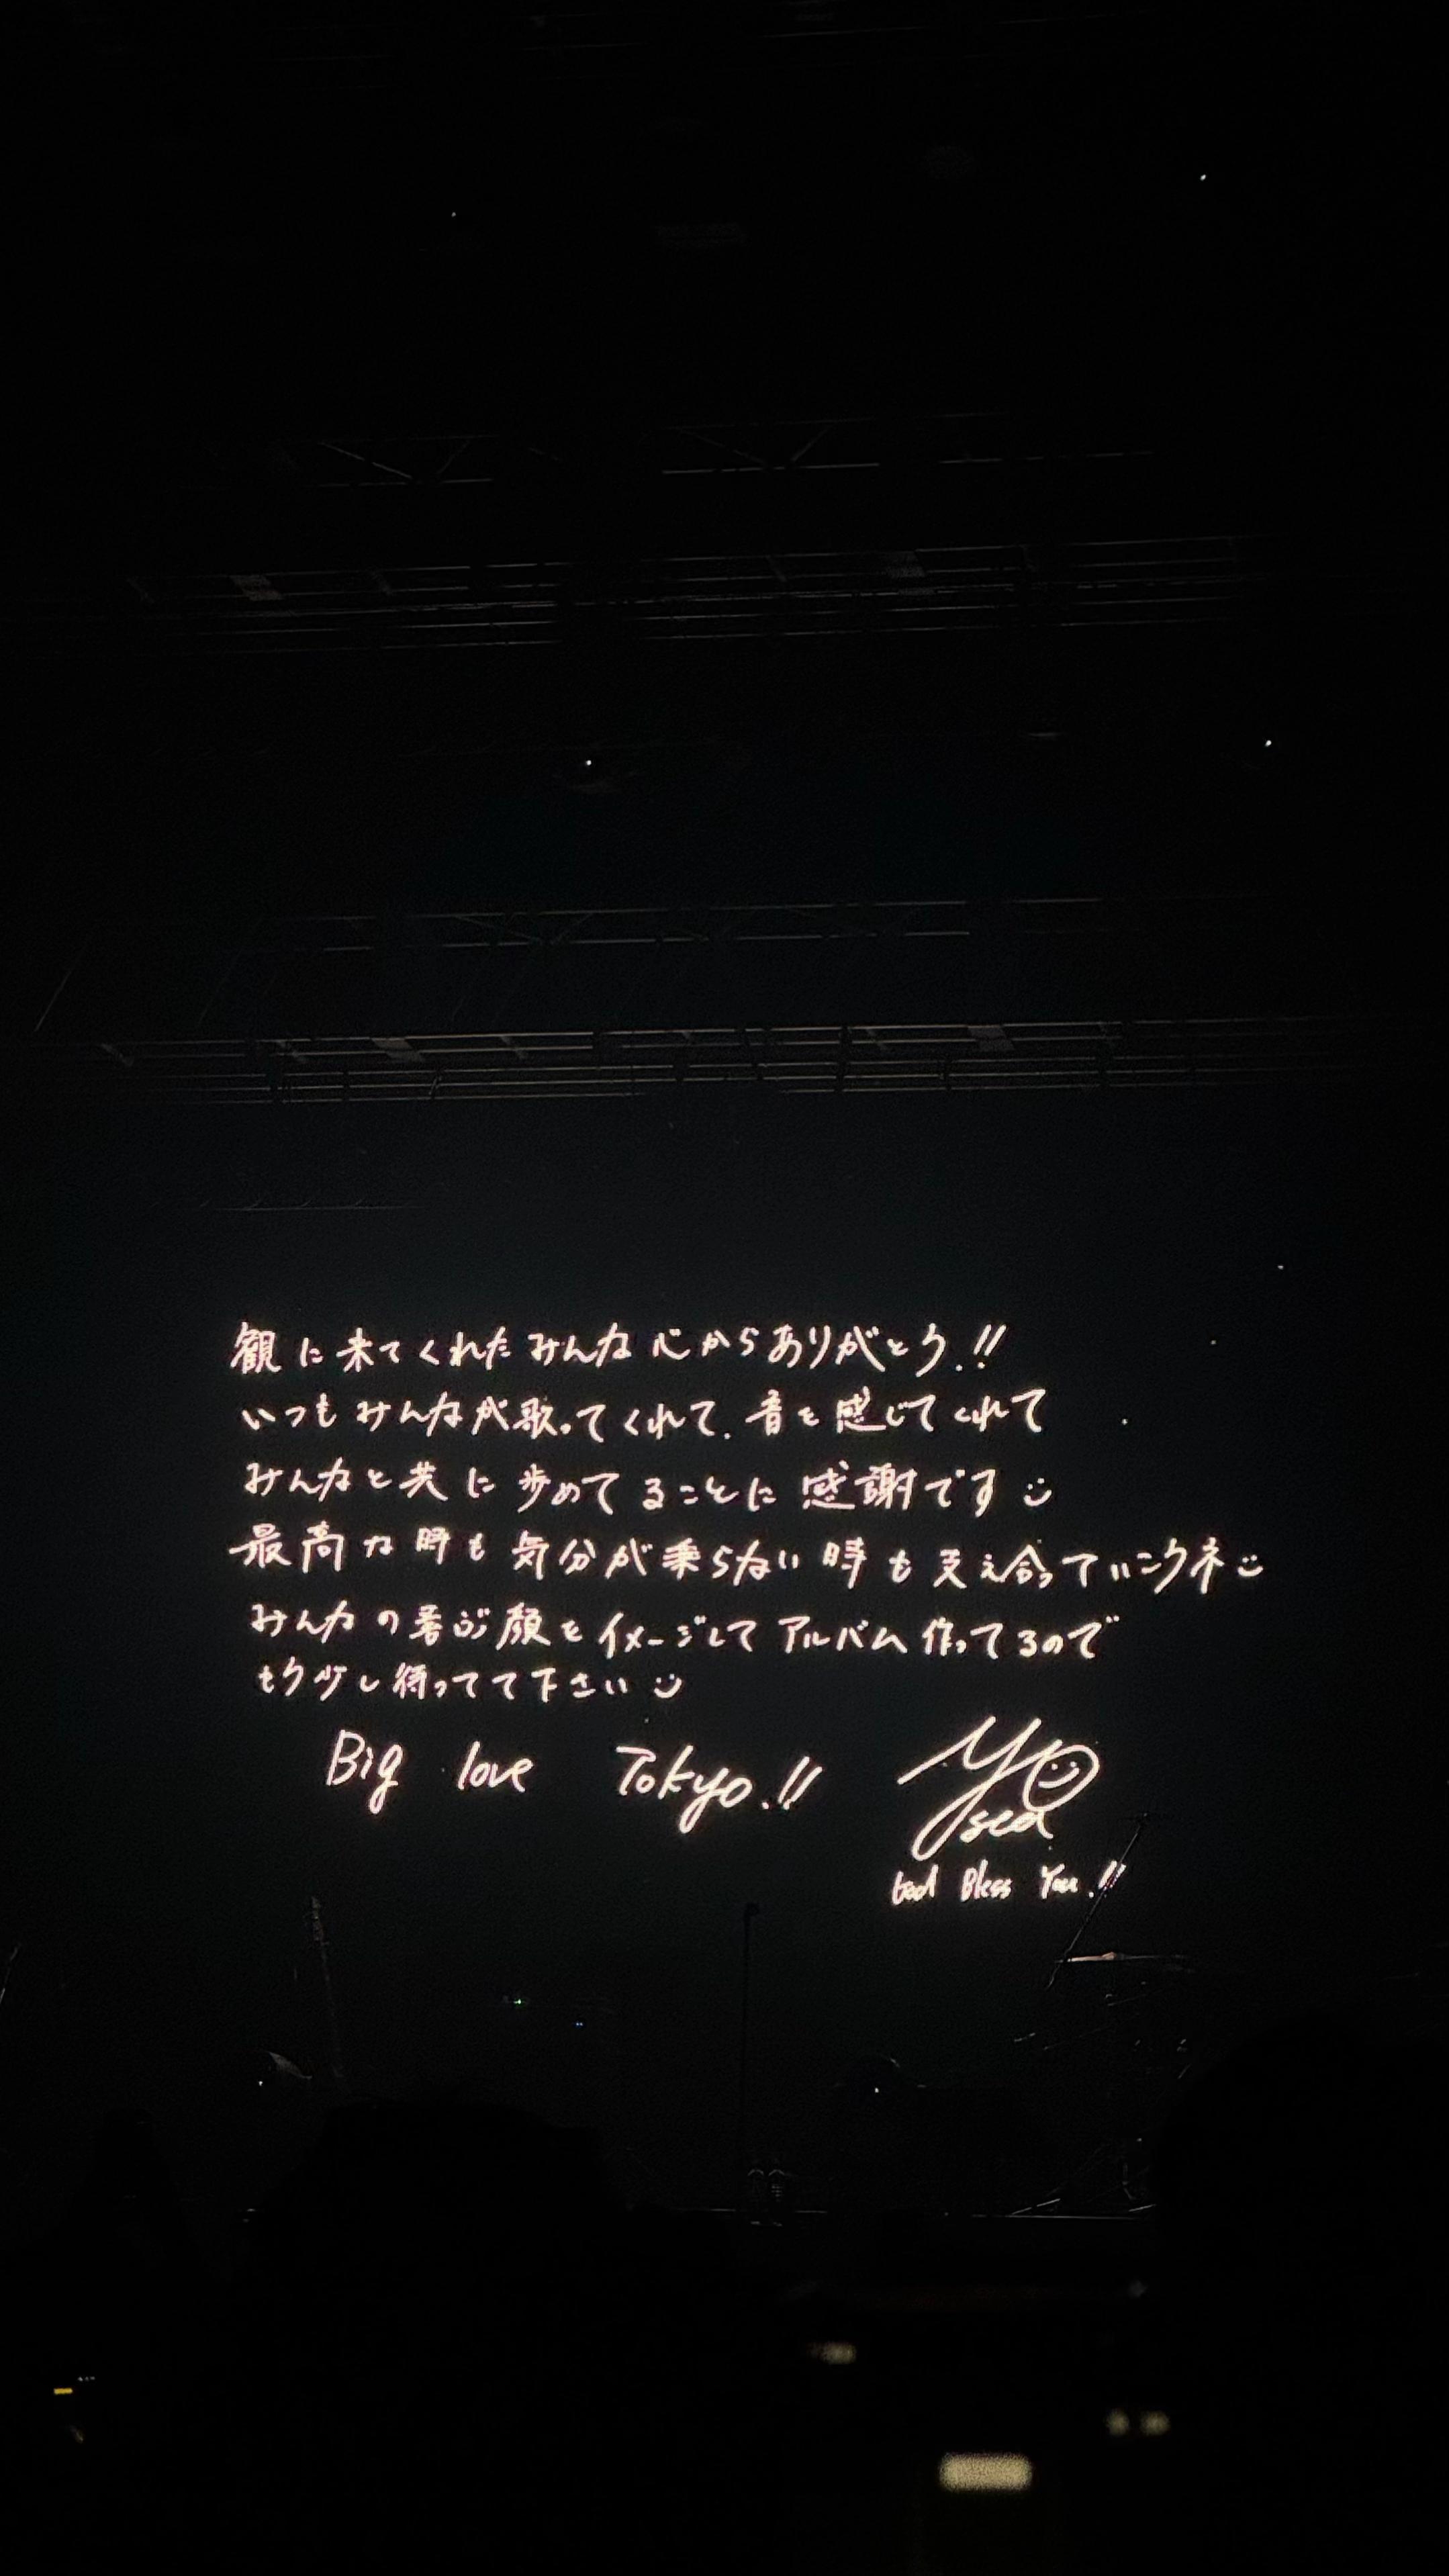 観に来てくれたみんな心からありがとう!!
いつもみんなが歌ってくれて、音を感じてくれて
みんなと共に歩めてることに感謝です
最高な時も気分が乗らない時も支え合っていこうネ
みんなの喜ぶ顔をイメージしてアルバム作ってるので
もう少し待ってて下さい
Big love Tokyo!!
God Bless You!!